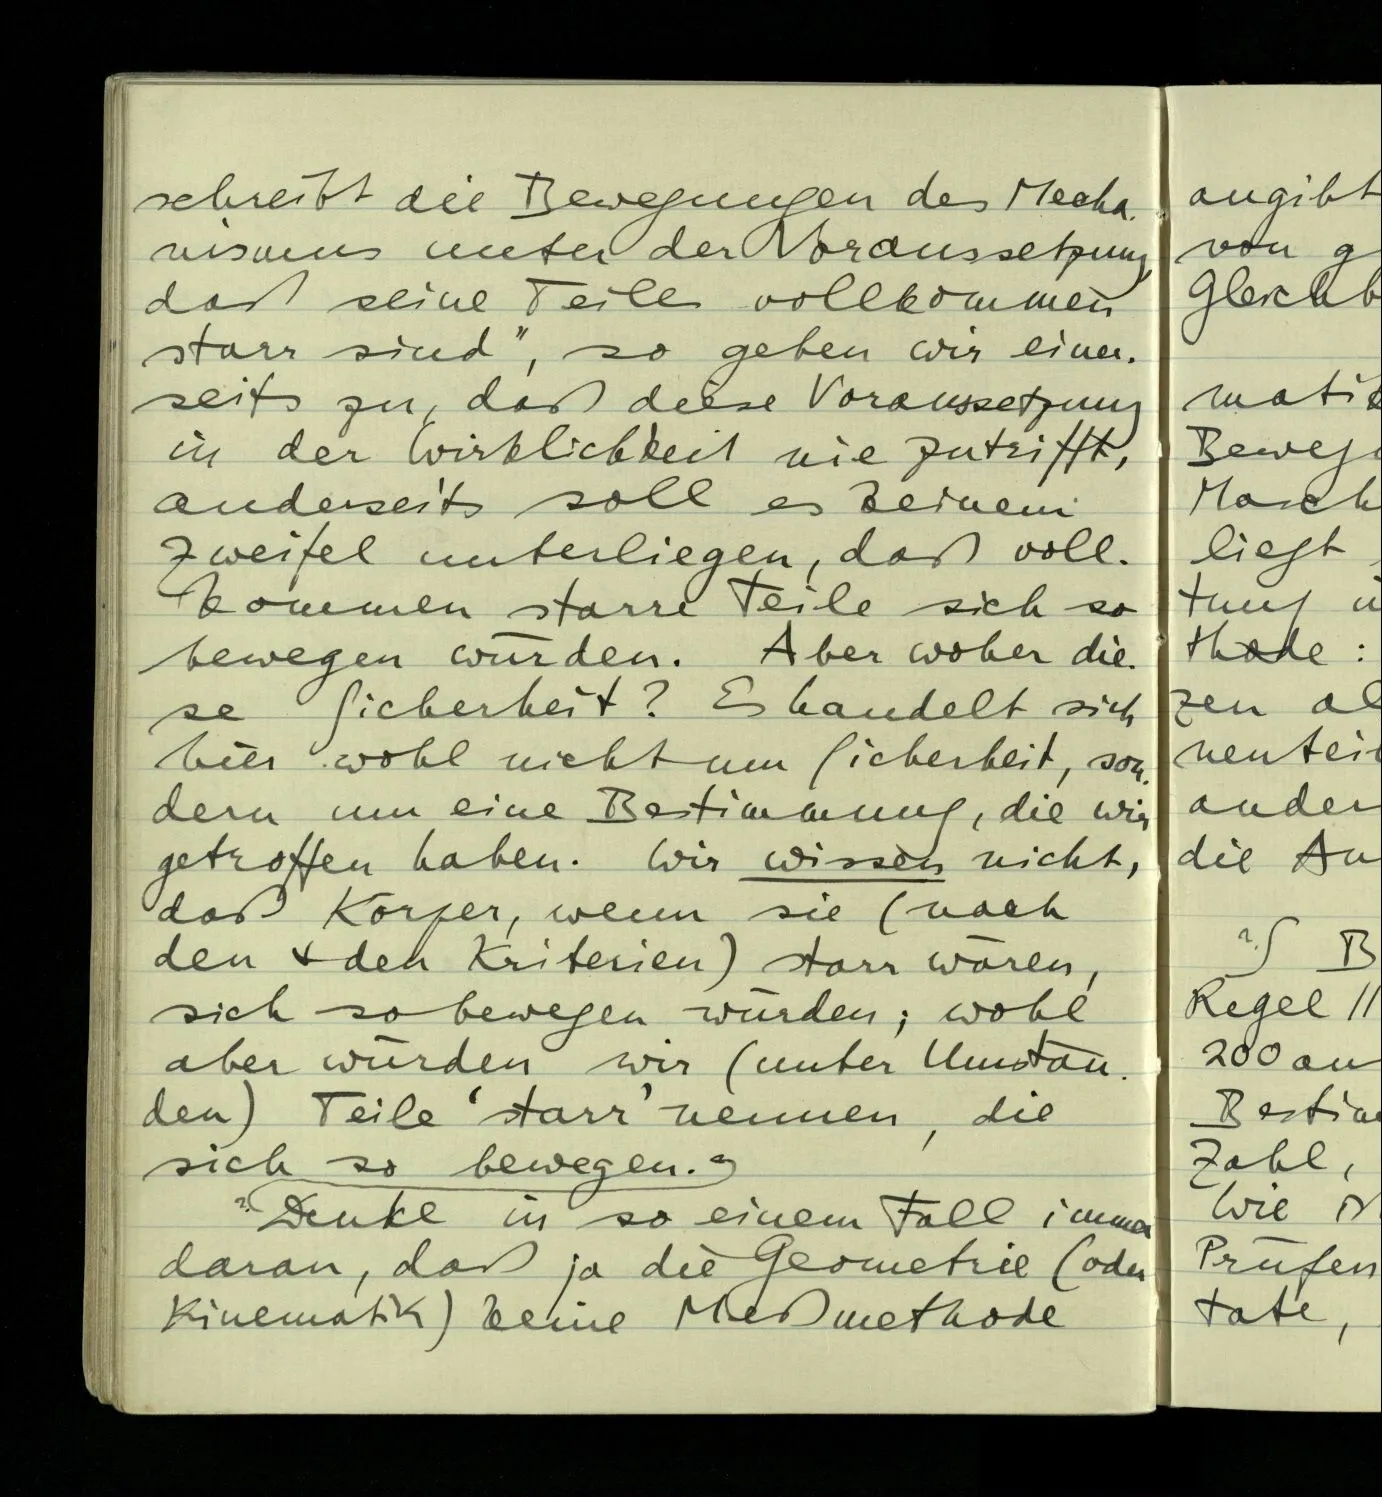 schreibt die Bewegungen des Mecha-
nismus unter der Voraussetzung
daß seine Teile vollkommen
starr sind", so geben wir einer-
seits zu, daß diese Voraussetzung
in der Wirklichkeit nie zutrifft,
anderseits soll es keinem
Zweifel unterliegen, daß voll-
kommen starre Teile sich so
bewegen würden. Aber woher die-
se Sicherheit? Es handelt sich
hier wohl nicht um Sicherheit, son-
dern um eine Bestimmung, die wir
getroffen haben. Wir wissen nicht,
daß Körper, wenn sie (nach
den & den Kriterien) starr wären,
sich so bewegen würden; wohl
aber würden wir (unter Umstän-
den) Teile 'starr' nennen, die
sich so bewegen.
Denke in so einem Fall immer
daran, daß ja die Geometrie (oder
Kinematik) keine Meßmethode
angibt
von g
Gleichb
mati
Beweg
Masch
liegt
tung
thode :
zen al
nentei
ander
die An
? ∫ B
Regel //
200 an
Bestim
Zahl,
Wie
Prüfen
tate,